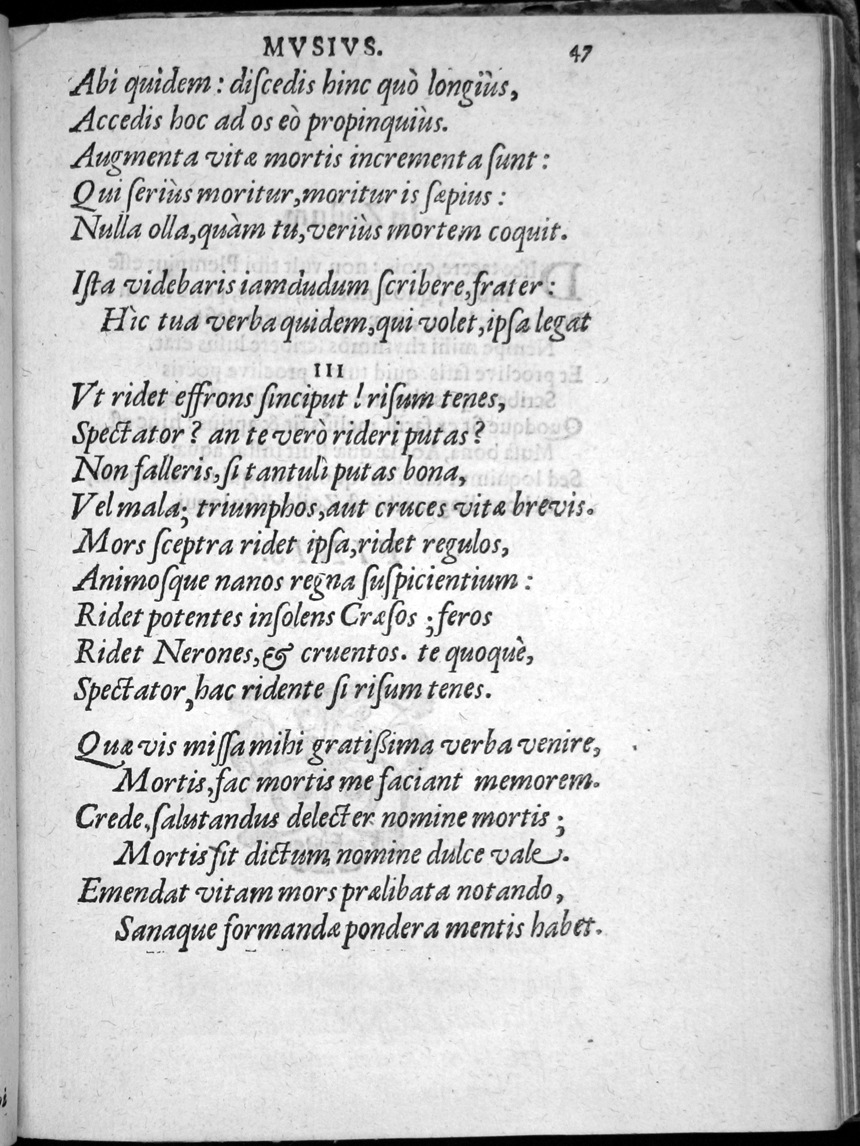 MVSIVS. 47
Abi quidem : diſcedis hinc quò longiùs,
Accedis hoc ad os eò propinquiùs.
Augmenta vitæ mortis incrementa ſunt :
Qui ſeriùs moritur, moritur is ſæpius :
Nulla olla, quàm tu, veriùs mortem coquit.
Iſta videbaris iamdudum ſcribere, frater :
Hìc tua verba quidem, qui volet, ipſa legat
III
Vt ridet effrons ſinciput ! riſum tenes,
Spectator ? an te vero rideri putas ?
Non falleris, ſi tantuli putas bona,
Vel mala; triumphos, aut cruces vitæ brevis.
Mors ſceptra ridet ipſa, ridet regulos,
Animoſque nanos regna ſuſpicientium :
Ridet potentes inſolens Cræſos ; feros
Ridet Nerones, & cruentos. te quoquè,
Spectator, hac ridente ſi riſum tenes.
Quæ vis miſſa mihi gratiſsima verba venire,
Mortis, fac mortis me faciant memorem.
Crede, ſalutandus delecter nomine mortis ;
Mortis ſit dictum nomine dulce vale.
Emendat vitam mors prælibata notando,
Sanaque formandæ pondera mentis habet.